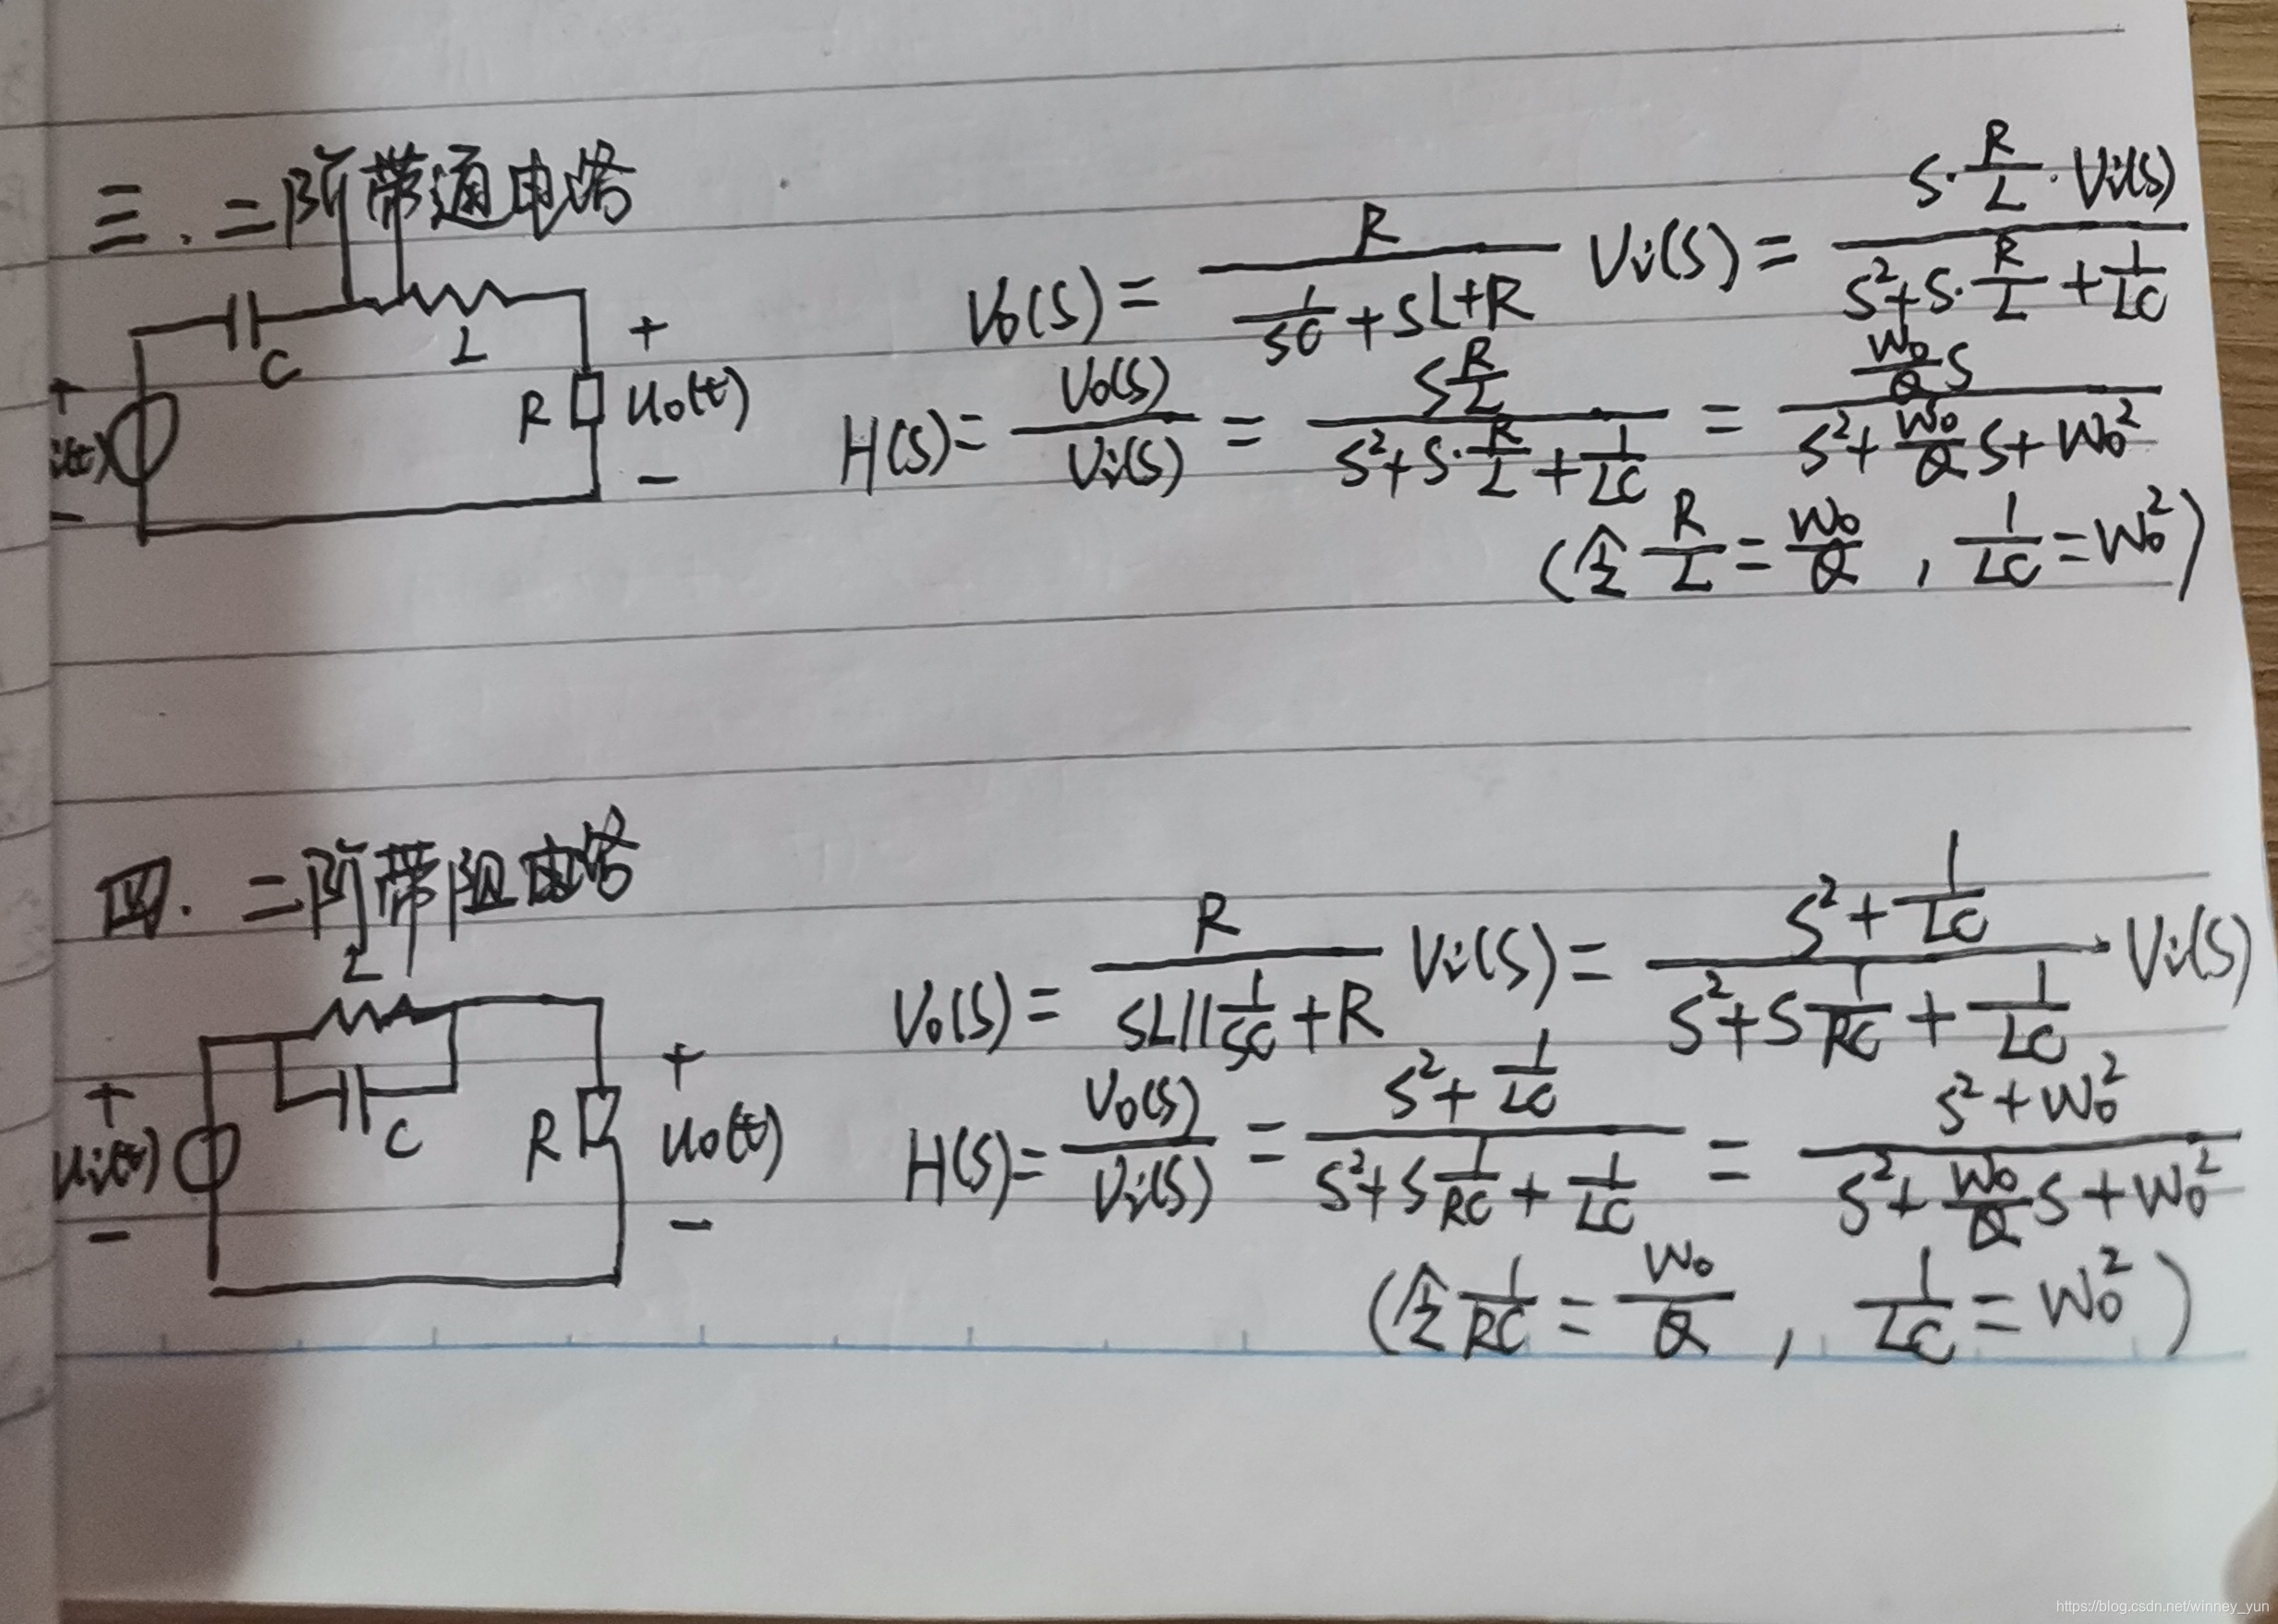 三.二阶带通电路
V₀(S) = R / (1/SC + SL + R) Vi(S) = S·R/L·Vi(S) / (S² + S·R/L + 1/LC)
C
L
+
R
u₀(t)
−
+
i(t)
−
H(S) = V₀(S) / Vi(S) = S R/L / (S² + S·R/L + 1/LC) = W₀/Q S / (S² + W₀/Q S + W₀²)
(令 R/L = W₀/Q , 1/LC = W₀²)
四.二阶带阻电路
V₀(S) = R / (SL∥1/SC + R) Vi(S) = (S² + 1/LC) / (S² + S 1/RC + 1/LC) · Vi(S)
L
C
+
ui(t)
−
R
+
u₀(t)
−
H(S) = V₀(S) / Vi(S) = (S² + 1/LC) / (S² + S 1/RC + 1/LC) = (S² + W₀²) / (S² + W₀/Q S + W₀²)
(令 1/RC = W₀/Q , 1/LC = W₀²)
https://blog.csdn.net/winney_yun